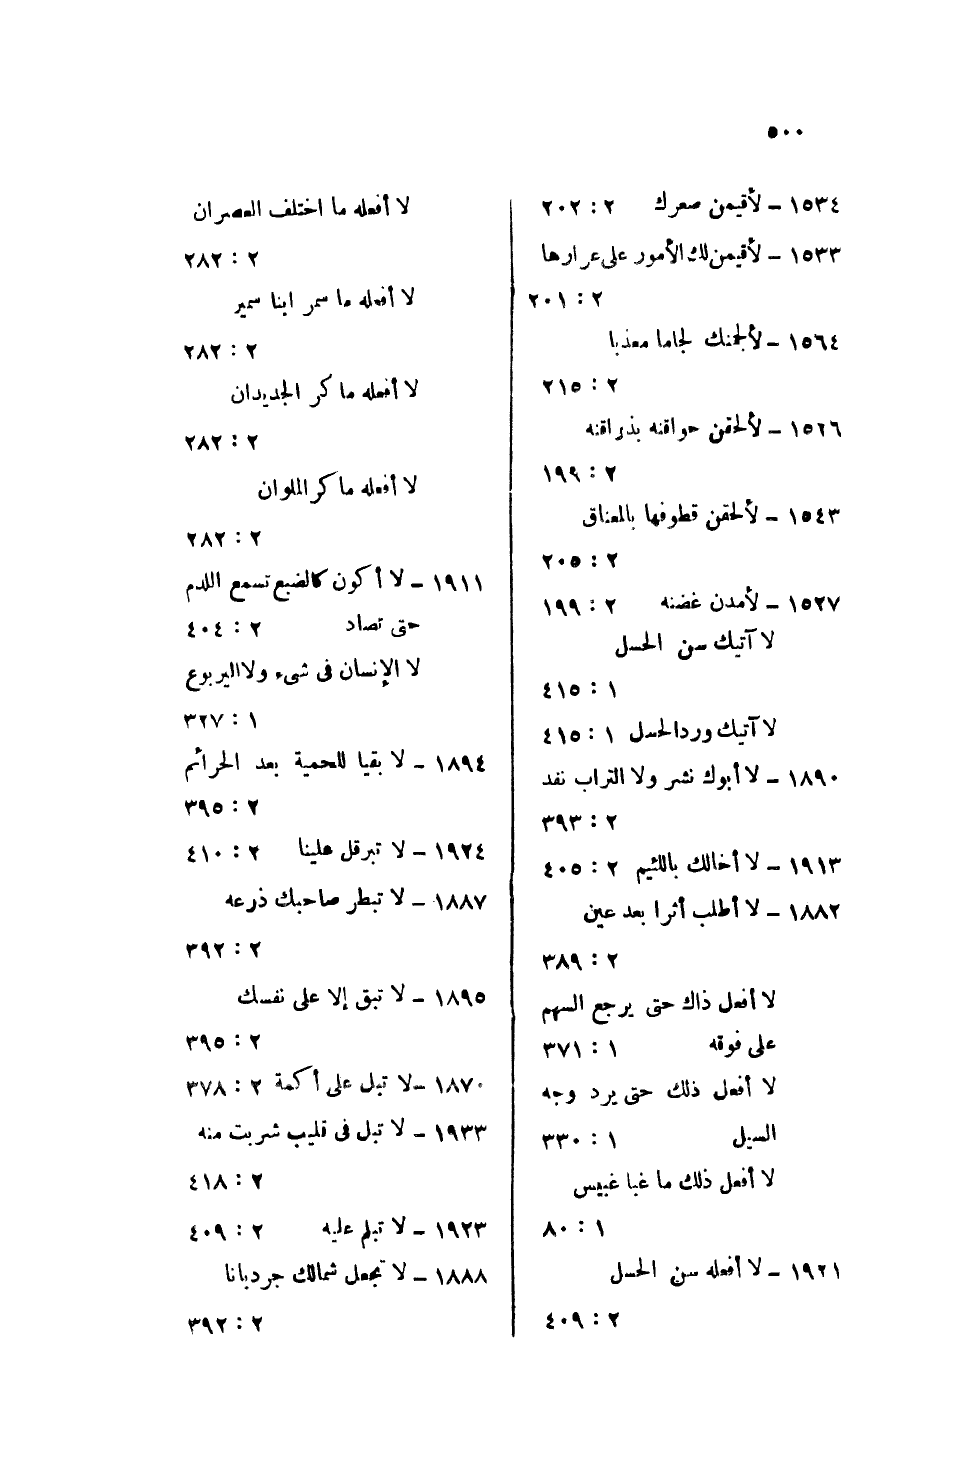 ٥٠٠
١٥٣٤ – لأقيمن صعرك ٢ : ٢٠٢
١٥٣٣ – لأقيمن لك الأمور على عرارها
٢ : ٢٠١
١٥٦٤ – لألجمنك لجاما معذبا
٢ : ٢١٥
١٥٢٦ – لألحقن حواقنه بذراقنه
٢ : ١٩٩
١٥٤٣ – لألحقن قطوفها بالمعناق
٢ : ٢٠٥
١٥٢٧ – لأمدن غضنه ٢ : ١٩٩
لا آتيك سن الحسل
١ : ٤١٥
لا آتيك ورد الحسل ١ : ٤١٥
١٨٩٠ – لا أبوك نشر ولا التراب نفد
٢ : ٣٩٣
١٩١٣ – لا أخالك باللئيم ٢ : ٤٠٥
١٨٨٢ – لا أطلب أثرا بعد عين
٢ : ٣٨٩
لا أفعل ذاك حتى يرجع السهم
على فوقه ١ : ٣٧١
لا أفعل ذلك حتى يرد وجه
السيل ١ : ٣٣٠
لا أفعل ذلك ما غبا غبيس
١ : ٨٠
١٩٢١ – لا أفعله سن الحسل
٢ : ٤٠٩
لا أفعله ما اختلف العصران
٢ : ٢٨٢
لا أفعله ما سمر ابنا سمير
٢ : ٢٨٢
لا أفعله ما كر الجديدان
٢ : ٢٨٢
لا أفعله ما كر الملوان
٢ : ٢٨٢
١٩١١ – لا أكون كالضبع تسمع اللدم
حتى تصاد ٢ : ٤٠٤
لا الإنسان فى شىء ولا اليربوع
١ : ٣٢٧
١٨٩٤ – لا بقيا للحمية بعد الحرائم
٢ : ٣٩٥
١٩٢٤ – لا تبرقل علينا ٢ : ٤١٠
١٨٨٧ – لا تبطر صاحبك ذرعه
٢ : ٣٩٢
١٨٩٥ – لا تبق إلا على نفسك
٢ : ٣٩٥
١٨٧٠ – لا تبل على أكمة ٢ : ٣٧٨
١٩٣٣ – لا تبل فى قليب شربت منه
٢ : ٤١٨
١٩٢٣ – لا تبلم عليه ٢ : ٤٠٩
١٨٨٨ – لا تجعل شمالك جردبانا
٢ : ٣٩٢